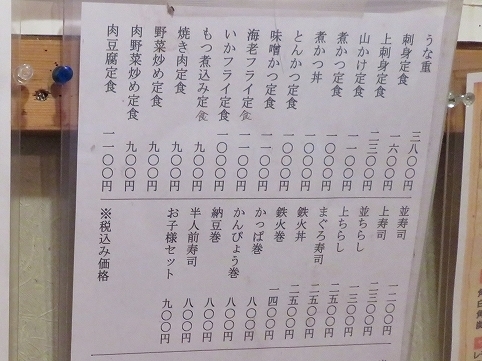 うな重 三八〇〇円
刺身定食 一六〇〇円
上刺身定食 二三〇〇円
山かけ定食 一一〇〇円
煮かつ定食 一〇〇〇円
煮かつ丼 一〇〇〇円
とんかつ定食 一〇〇〇円
味噌かつ定食 一一〇〇円
海老フライ定食 一一〇〇円
いかフライ定食 一〇〇〇円
もつ煮込み定食 九〇〇円
焼き肉定食 九〇〇円
野菜炒め定食 九〇〇円
肉野菜炒め定食 九〇〇円
肉豆腐定食 一一〇〇円
並寿司 一二〇〇円
上寿司 二三〇〇円
並ちらし 一三〇〇円
上ちらし 二五〇〇円
まぐろ寿司 二五〇〇円
鉄火丼 二五〇〇円
鉄火巻 一四〇〇円
かっぱ巻 八〇〇円
かんぴょう巻 八〇〇円
納豆巻 八〇〇円
半人前寿司 八〇〇円
お子様セット 九〇〇円
※税込み価格